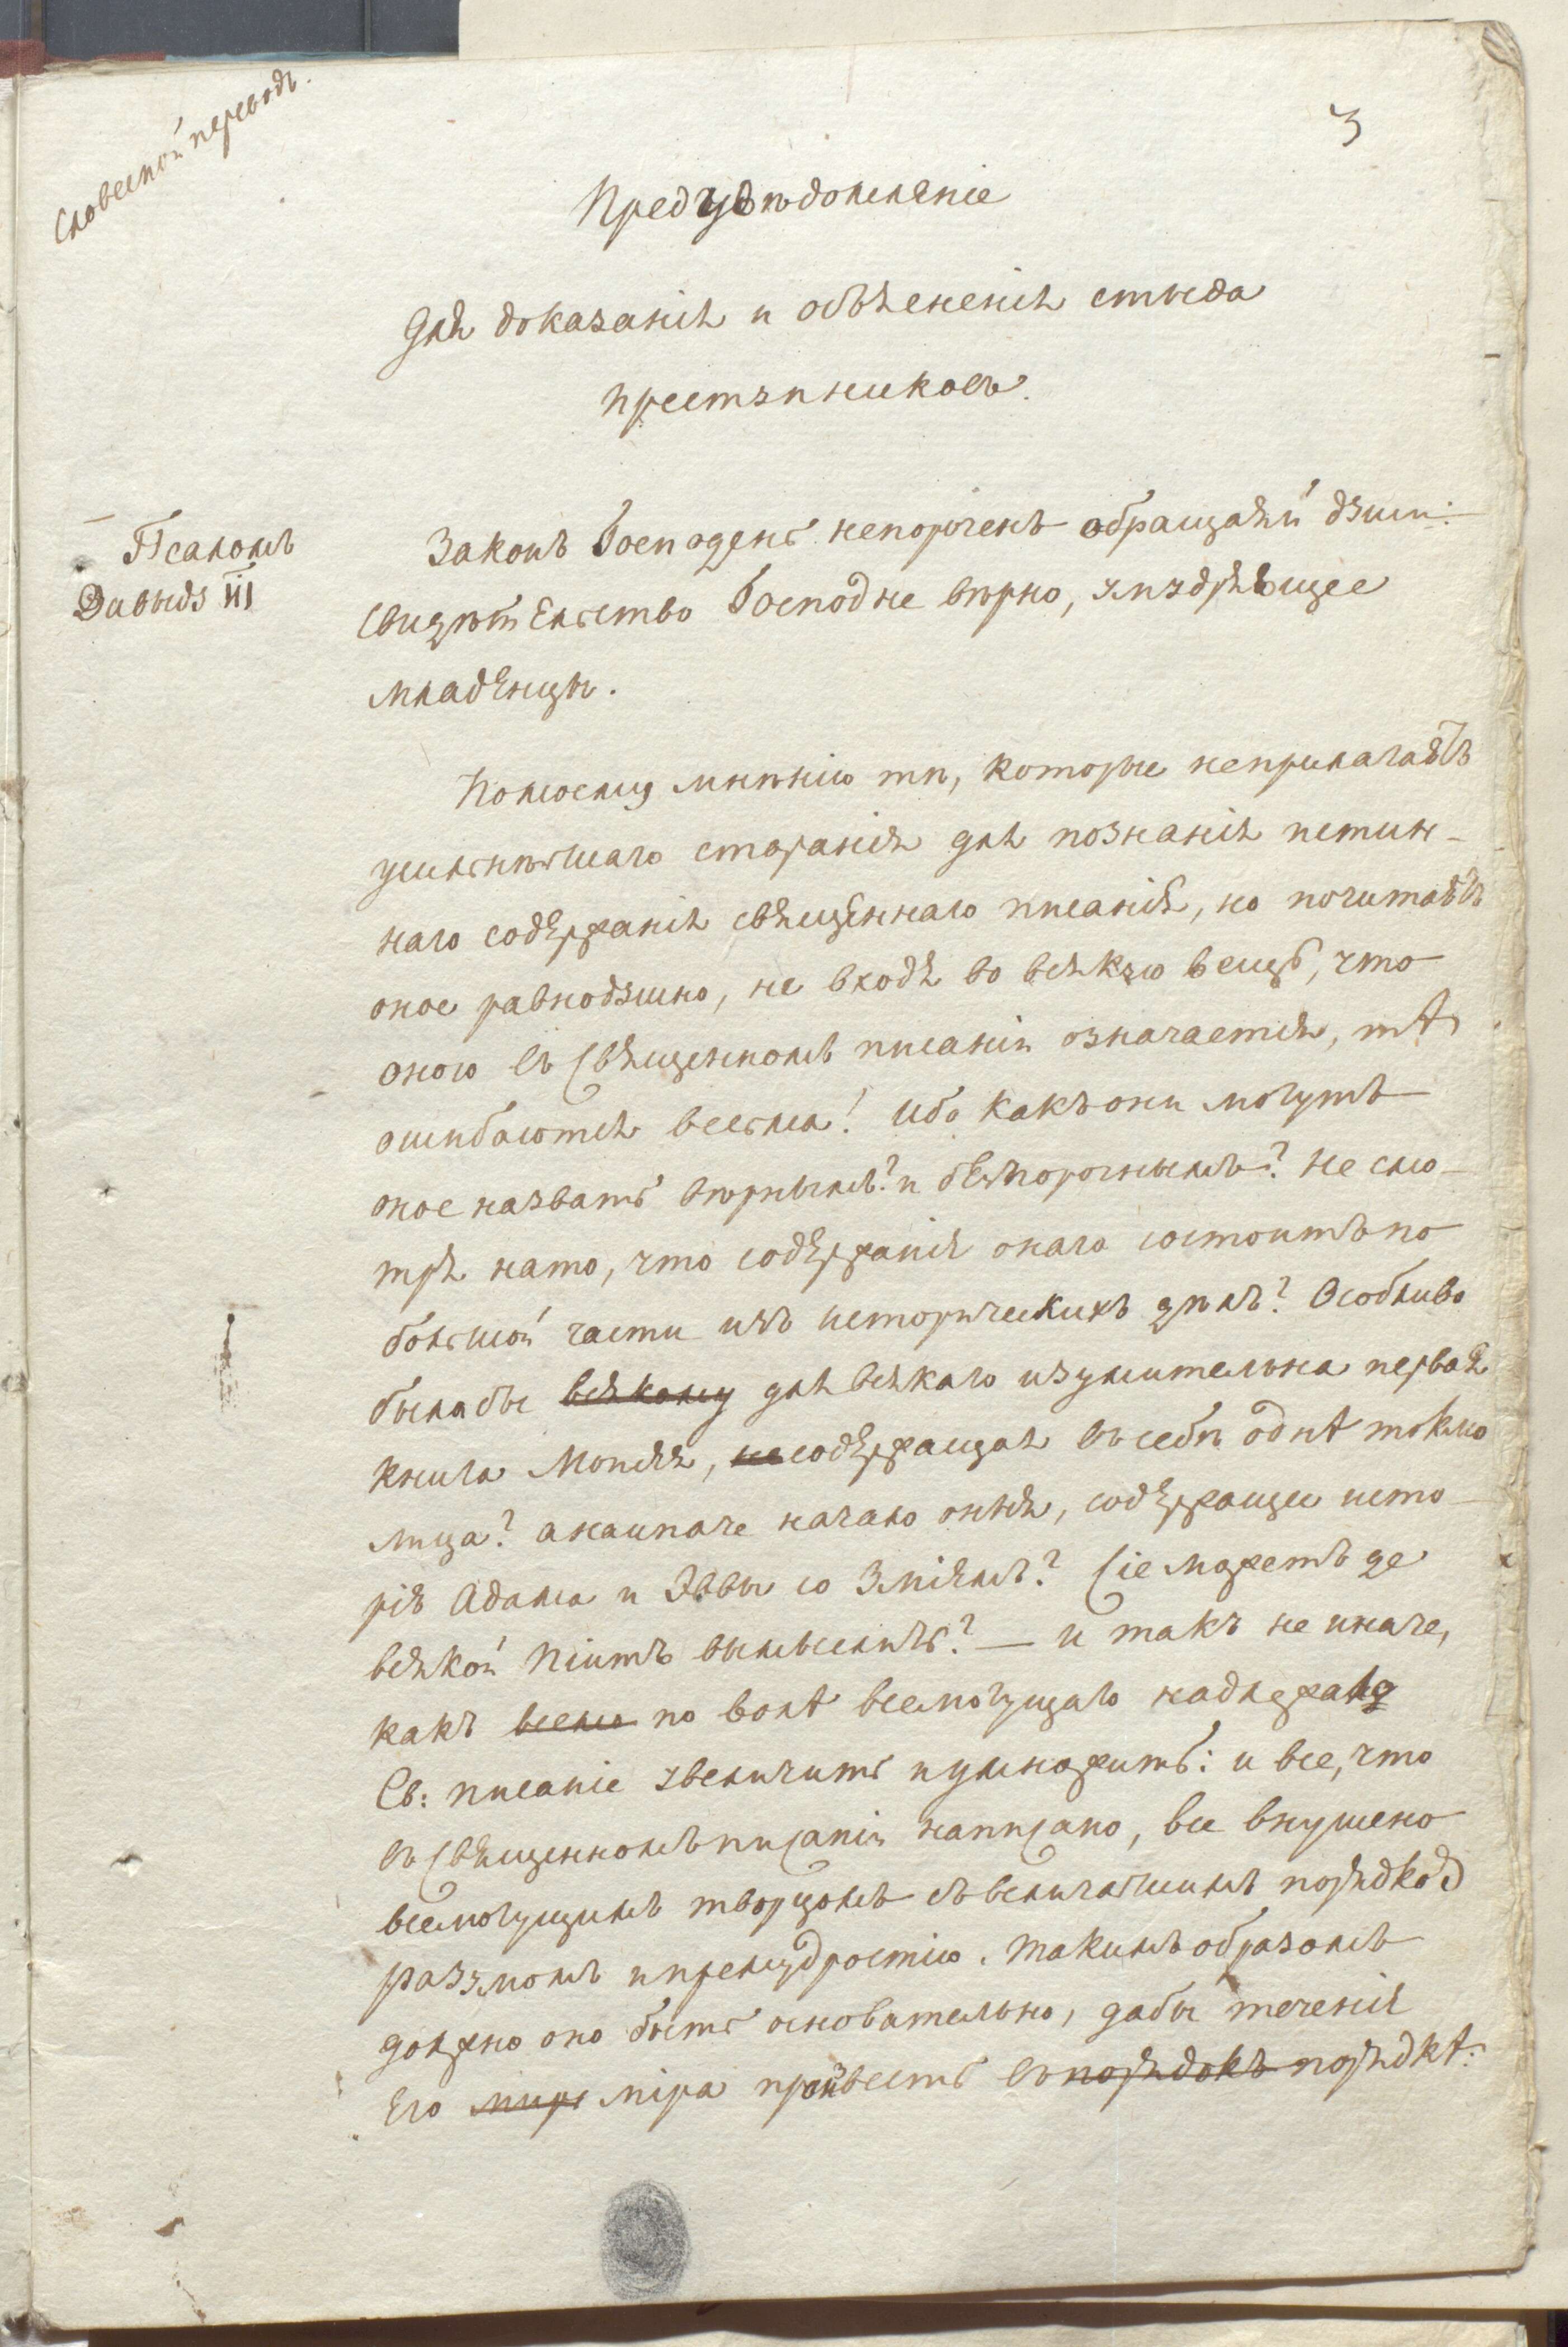 Словесной переводъ.
3
Предъувѣдомленіе
Для доказанія и объясненія стыда
преступниковъ.
Псаломъ
Давыда
Законъ Господень непороченъ обращаяй души:
Свидѣтельство Господне вѣрно, умудряющее
младенцы.
По моему мнѣнію тѣ, которые неприлагаютъ
усильнѣйшаго старанія для познанія истин-
наго содержанія священнаго писанія, но почитаютъ
оное равнодушно, не входя во всякую вещь, что
оною въ Священномъ писаніи означается, тѣ
ошибаются весьма! Ибо какъ они могутъ
оное назвать вѣрнымъ? и безпорочнымъ? не смо-
тря нато, что содержанія онаго состоитъ по
большой части изъ историческихъ дѣлъ? Особливо
былабы всякому для всякаго изумительна первая
книга Моисея, не содержащая въ себѣ однѣ токмо
лица? а наипаче начало онья, содержащеи исто-
рія Адама и Эввы со Зміемъ? Сіе можетъ де
всякой Піитъ вымыслить? — и такъ не иначе,
какъ всемо по волѣ всемогущаго надлежало
Св: писаніе увеличить иумножить: и все, что
въ Священномъ писаніи написано, все внушено
всемогущимъ творцомъ съ величайшимъ порядкомъ
разумомъ ипремудростію. Такимъ образомъ
должно оно быть основательно, дабы теченія
Его мира міра произвесть въ порядокъ порядкѣ: